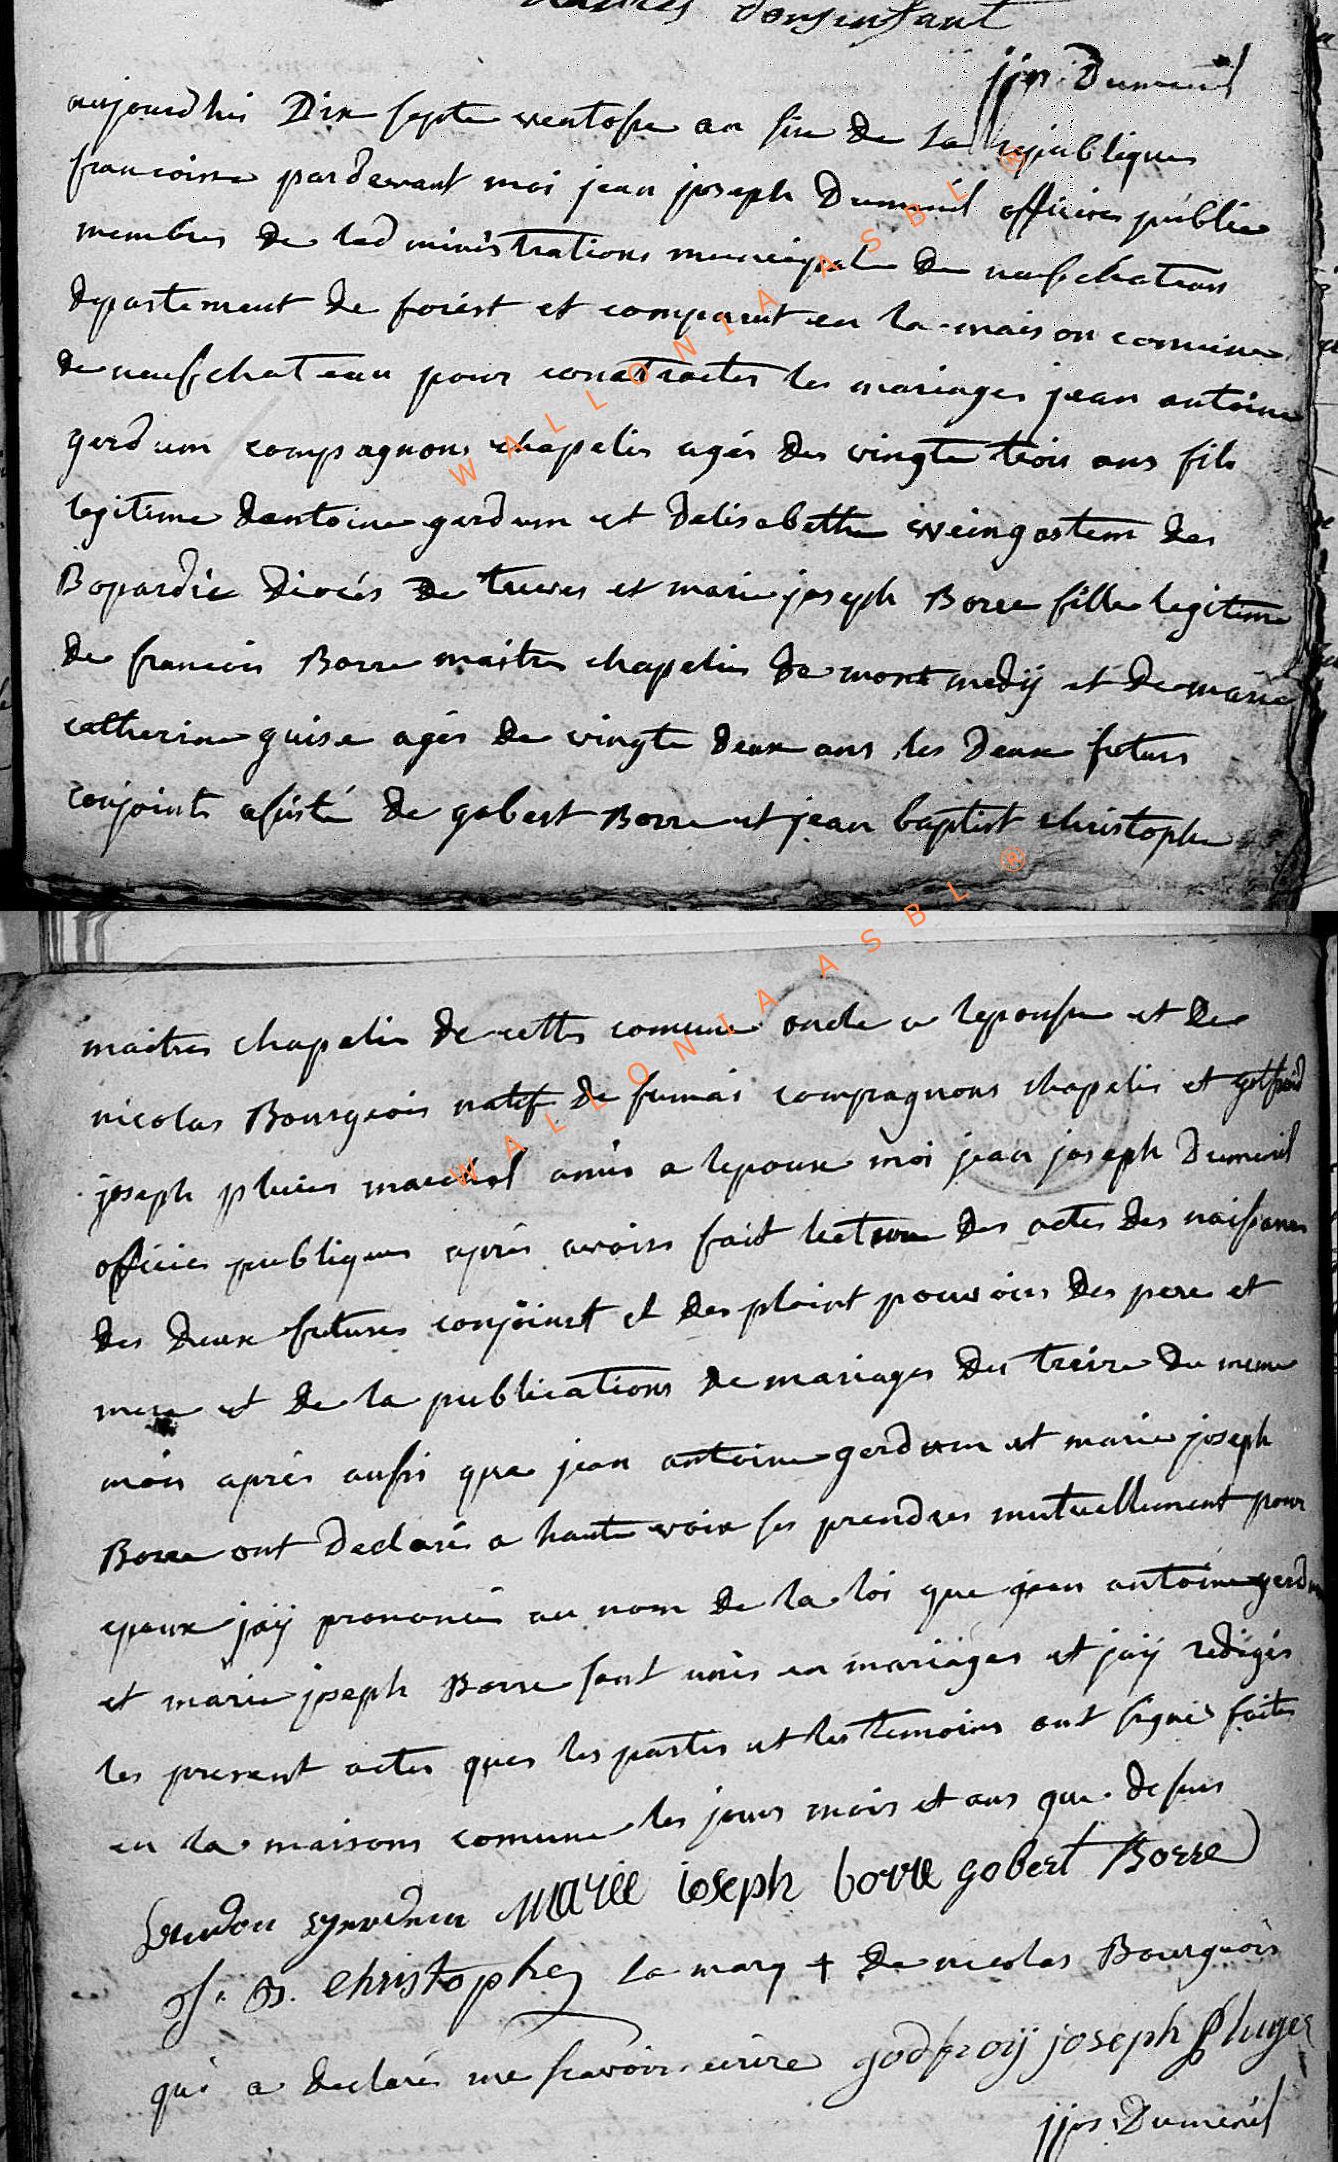 jjp Dumenil
aujourdhui Dix septe ventose an six de la republique
francoisse pardevant moi jean joseph Dumenil officier public
membres de ladministrations municipale de neufchateau
departement de forêst et comparut en la maison comune
de neufchateau pour contracter les mariages jean antoine
gerdum compagnons chapelier agés des vingte trois ans fils
legitime dantoine gerdum et delisabethe weingostem des
Bopardie diocés de treves et marie joseph Borre fille legitime
de francois Borre maitre chapelier de montmedÿ et de marie
catherine guise agés de vingte deux ans les deux futurs
conjoints asisté de gobert Borre et jean baptist christophe
maitres chapelier de cette comune oncle a lepouse et de
nicolas Bourgeois natif de fumai compagnons chapelier et
joseph amis a lepoux moi jean joseph Dumenil
officier publiques aprés avoirs fait lecture des actes des naissances
des deux futures conjoinct et des plaint pouvoirs des pere et
mere et de la publications de mariages du treize du meme
mois aprés aussi que jean antoine gerdum et marie joseph
Borre ont declarés a haute voix ses prendres mutuellement pour
epoux jaÿ prononcés au nom de la loi que jean antoine gerdum
et marie joseph Borre sont unis en mariages et jaÿ redigés
les present actes ques les parties et les temoins ont signés faites
en la maisons comune les jours mois et ans que desus
gerdum Marie ioseph borre gobert Borre
J. B. christophe la marq + de nicolas Bourgeois
qui a declarés me scavoir ecrire godfroÿ joseph Pluger
jjos Dumenil
WALLONIA ASBL ®
WALLONIA ASBL ®